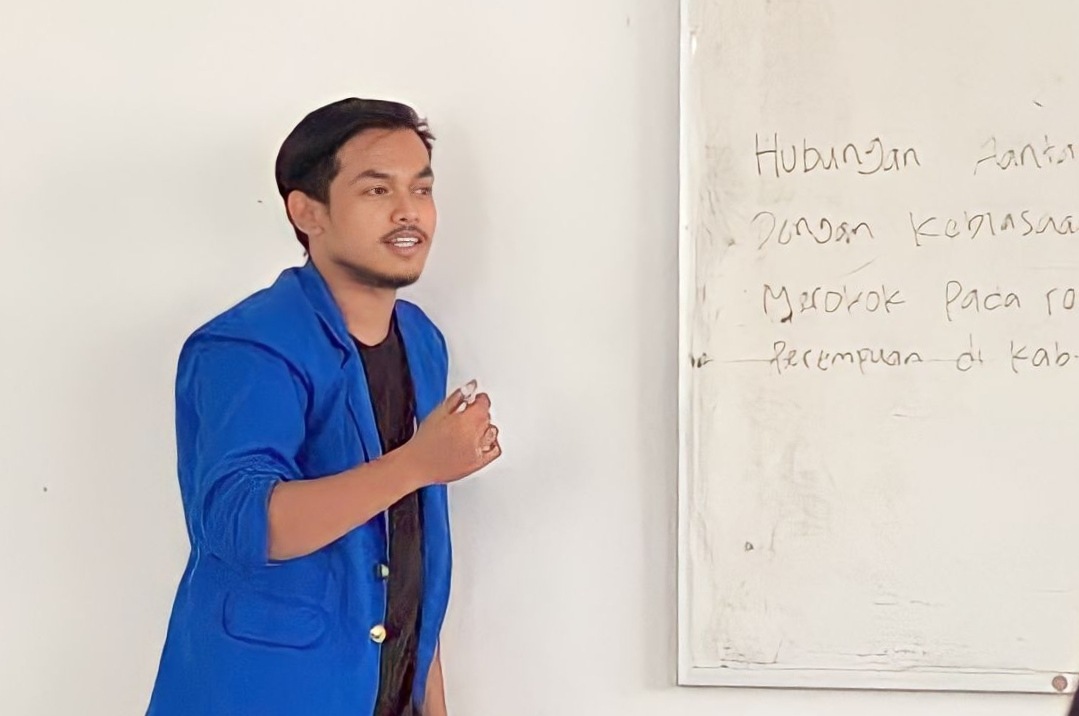 Hubungan Aanta
Dengan Kebiasaa
Merokok Pada ro
Perempuan di Kab-